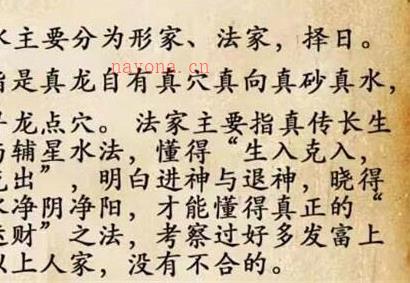 水主要分为形家、法家，择日。
nayona.cn
指是真龙自有真穴真向真砂真水，
寻龙点穴。法家主要指真传长生
与辅星水法，懂得“生入克入，
克出”，明白进神与退神，晓得
水净阴净阳，才能懂得真正的“
运财”之法，考察过好多发富上
以上人家，没有不合的。